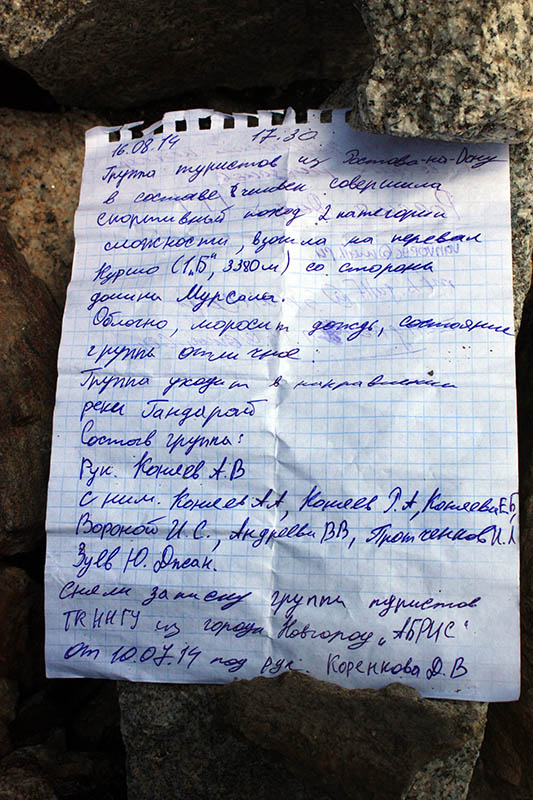 16.08.14 17.30
Группа туристов из Ростова-на-Дону
в составе 8 человек совершила
спортивный поход 2 категории
сложности, взошла на перевал
Куршо (1„Б“, 3380м) со стороны
долина Мурсалы.
Облочно, моросит дождь, состояние
группа отличное.
Группа уходит в направлении
реки Гандарай
Состав группа:
Рук. Коняев А.В
с ним. Коняев А.А, Коняев Р.А, Коняева Е.Б,
Вороной И.С., Андреева В.В, Протченков И.А
Зуев Ю. Джан.
Сняли записку группа туристов
ТК ННГУ из города Новгород „АБРИС“
от 10.07.14 под рук. Коренкова Д.В